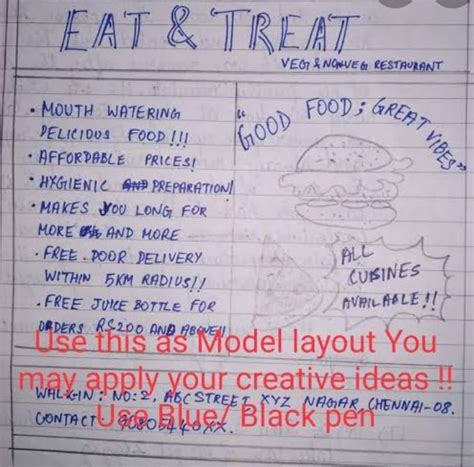 EAT & TREAT
VEG & NONVEG RESTAURANT
• MOUTH WATERING
DELICIOUS FOOD !!!
• AFFORDABLE PRICES!
• HYGIENIC AND PREPARATION!
• MAKES YOU LONG FOR
MORE AND MORE
• FREE DOOR DELIVERY
WITHIN 5KM RADIUS!!
• FREE JUICE BOTTLE FOR
ORDERS RS200 AND ABOVE!!
"GOOD FOOD; GREAT VIBES"
ALL
CUISINES
AVAILABLE!!
Use this as Model layout You
may apply your creative ideas !!
Use Blue/ Black pen
WALKGIN: NO:2, ABC STREET, XYZ NAGAR, CHENNAI-08.
CONTACT